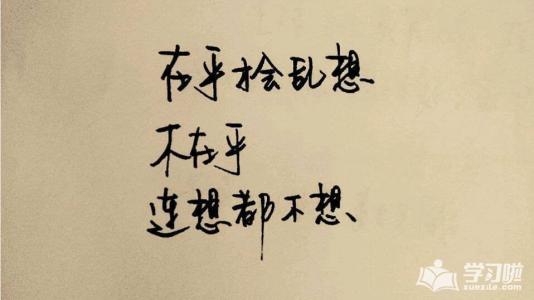 在乎才会乱想
不在乎
连想都不想、
学习啦
xuexila.com